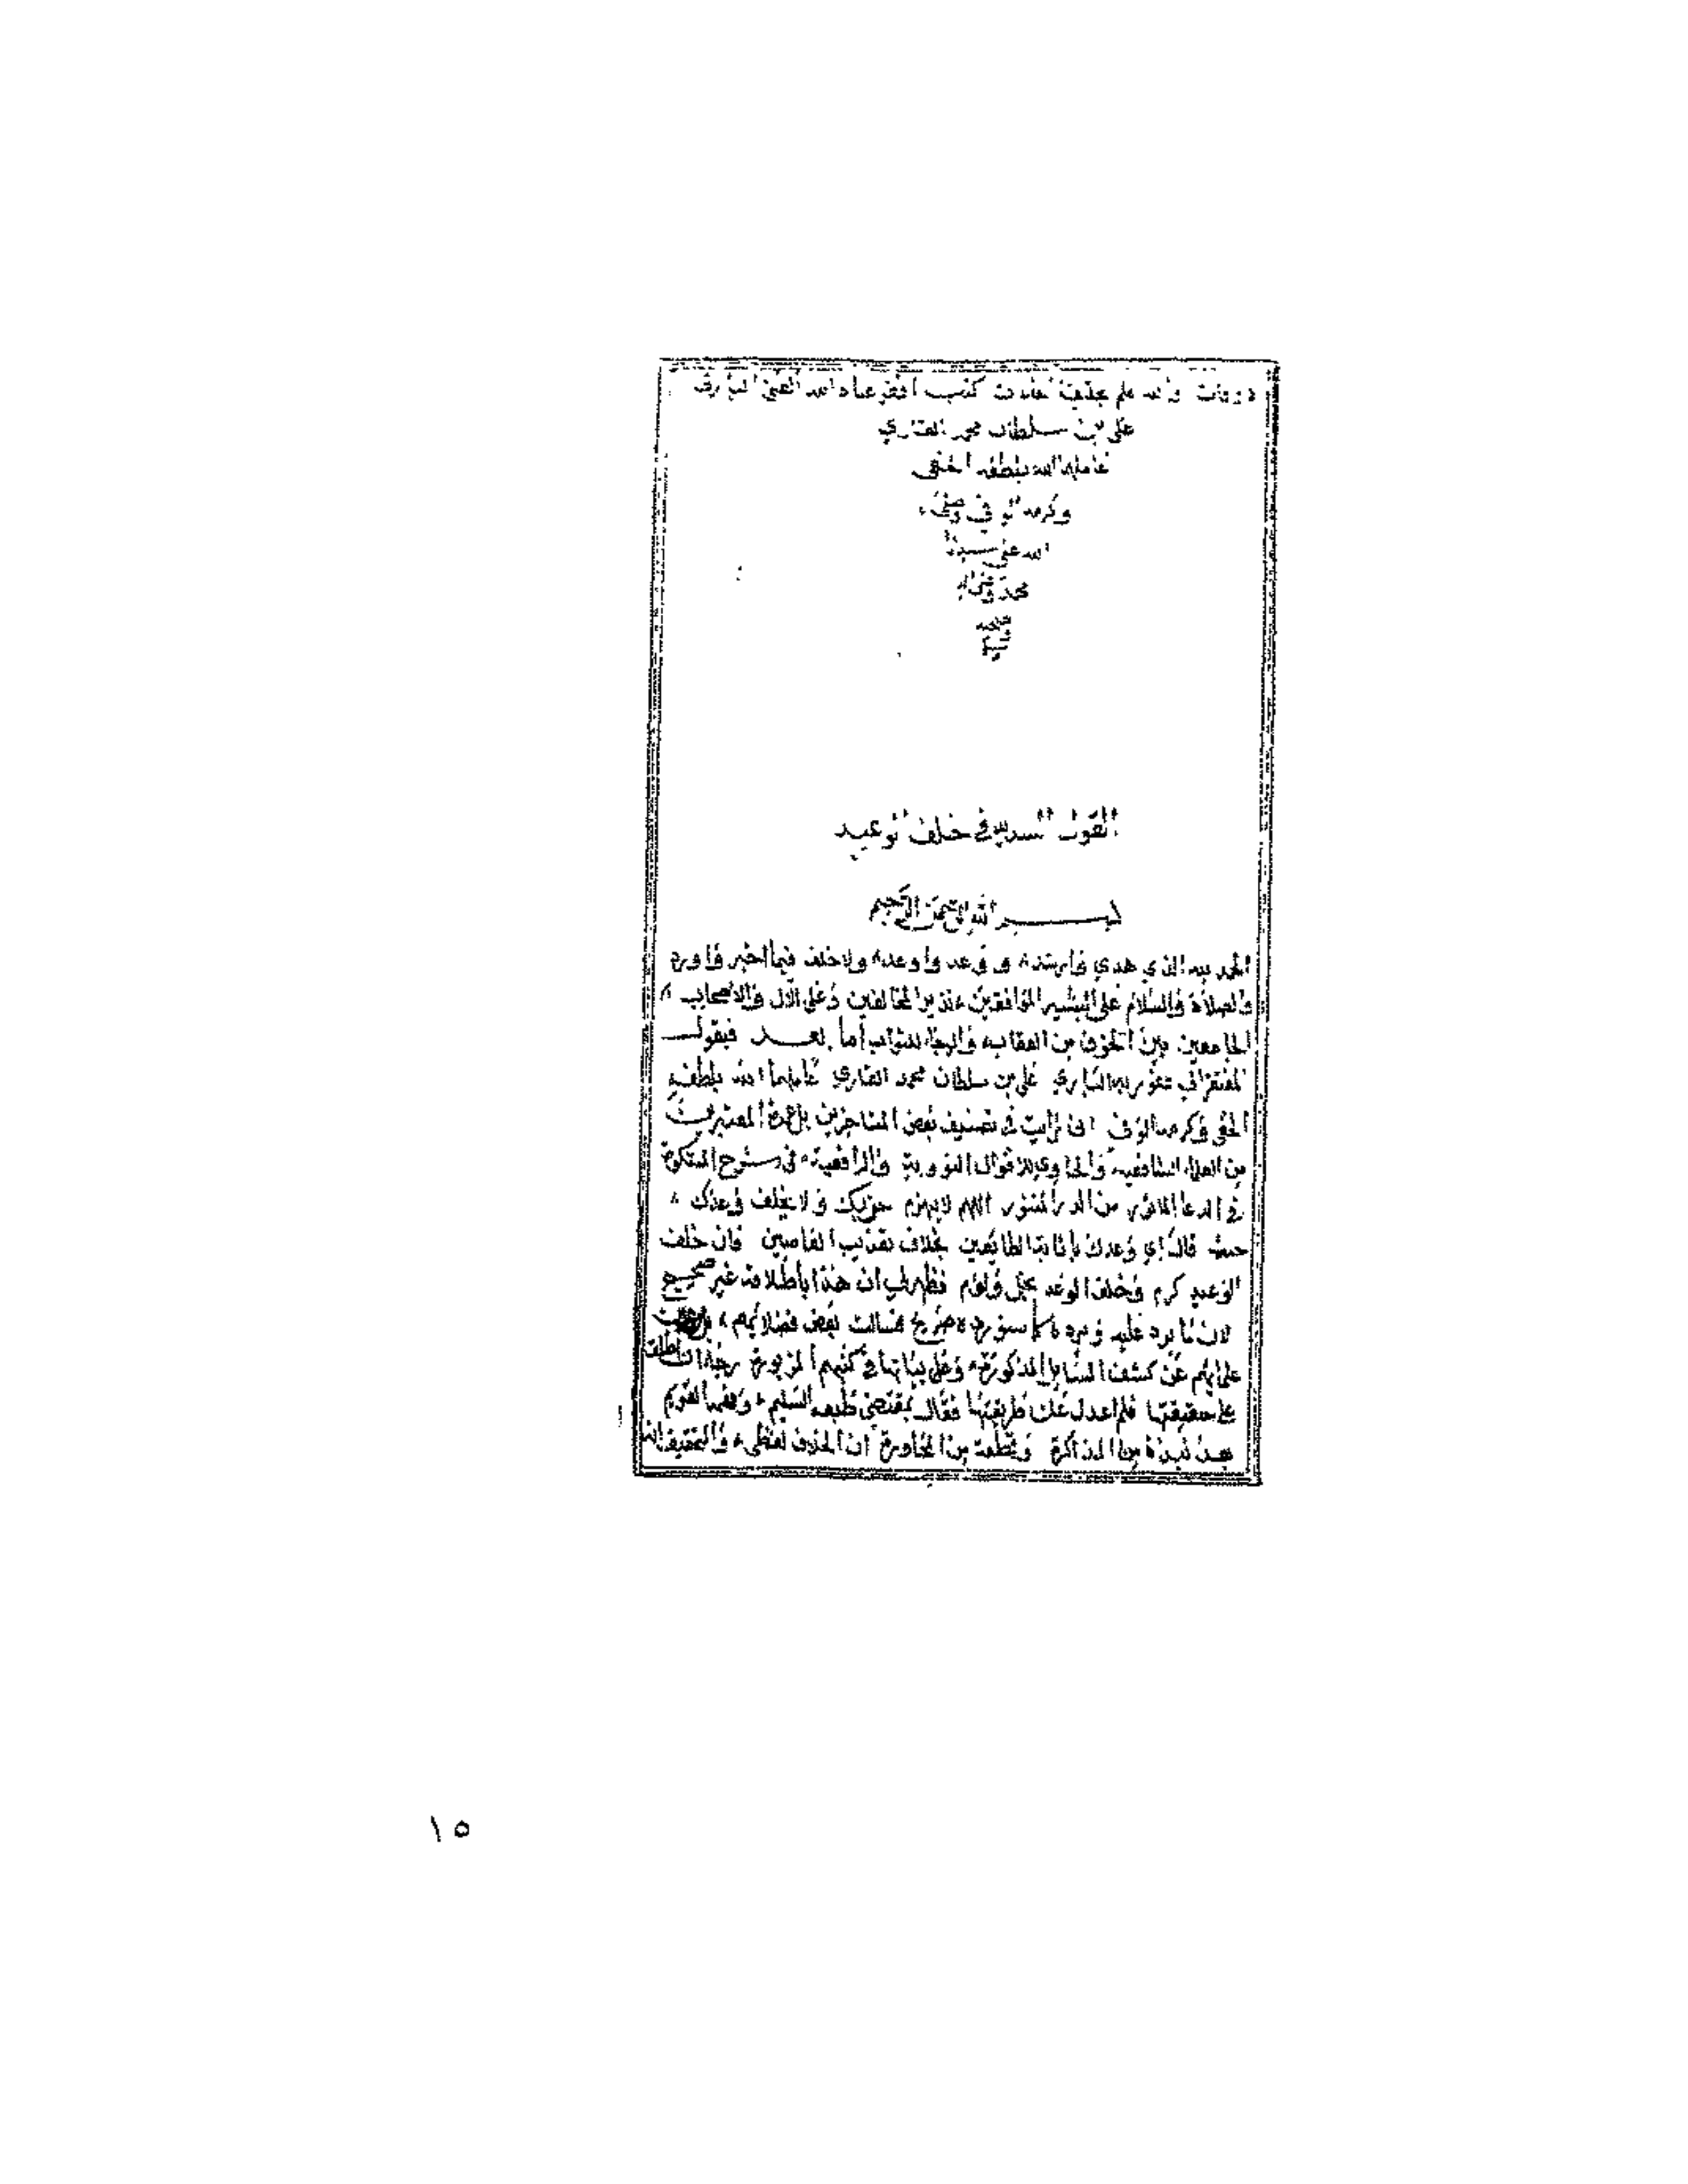 والله اعلم بحقيقة كتب افقر عباد الله الغني الباري
علي بن سلطان محمد القاري
عاملهما الله بلطفه الخفي
وكرمه الوفي وصلى
الله على سيدنا
محمد وعلى اله
وصحبه
وسلم
القول السديد في خلف الوعيد
بسم الله الرحمن الرحيم
الحمد لله الذي هدي وارشد ووعد واوعد ولا خلف فيما اخبر واورد
والصلاة والسلام على البشير الموافقين نذير المخالفين وعلى الآل والاصحاب
الجامعين بين الخوف من العقاب والرجاء للثواب أما بعد فيقول
المفتقر الي عفو ربه الباري علي بن سلطان محمد القاري عاملهما الله بلطفه
الخفي وكرمه الوفي اني رايت في تصنيف بعض المتاخرين المعتبرين
من العلماء الشافعية والحاوي للاقوال النووية والرافعية في شرح المشكوة
في الدعا الماثور من الدر المنثور اللهم لا يهزم حزبك ولا يخلف وعدك
حيث قال اي وعدك باثابة الطائعين بخلاف تعذيب العاصين فان خلف
الوعيد كرم وخلف الوعد بخل ولؤم فظهر لي ان هذا باطلاقه غير صحيح
لان ما يرد عليه ويرده كما سنورده صريح فسالت بعض فضلائهم
على انهم عن كشف المسايل المذكورة وعلى بيانها في كتبهم المزبورة رجاء ان اطلع
على حقيقتها فلم اعدل عن طريقتها فقال بمقتضى طبعه السليم وفهمه القويم
بعد نبذة من المذاكرة وقطعة من المحاورة ان الخلاف لفظي والتحقيق انه
١٥